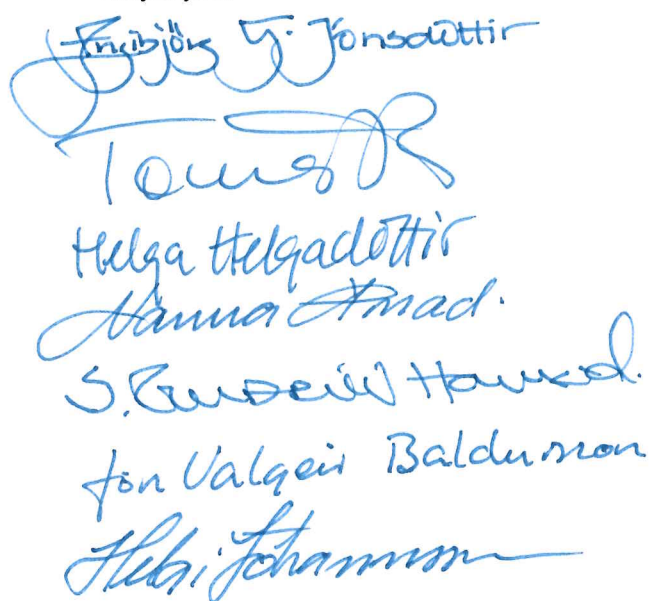 Ingibjörg G. Jónsdóttir
Tómas
Helga Helgadóttir
Hanna Arnad.
S. Hauksd.
Jón Valgeir Baldursson
Helgi Jóhannsson